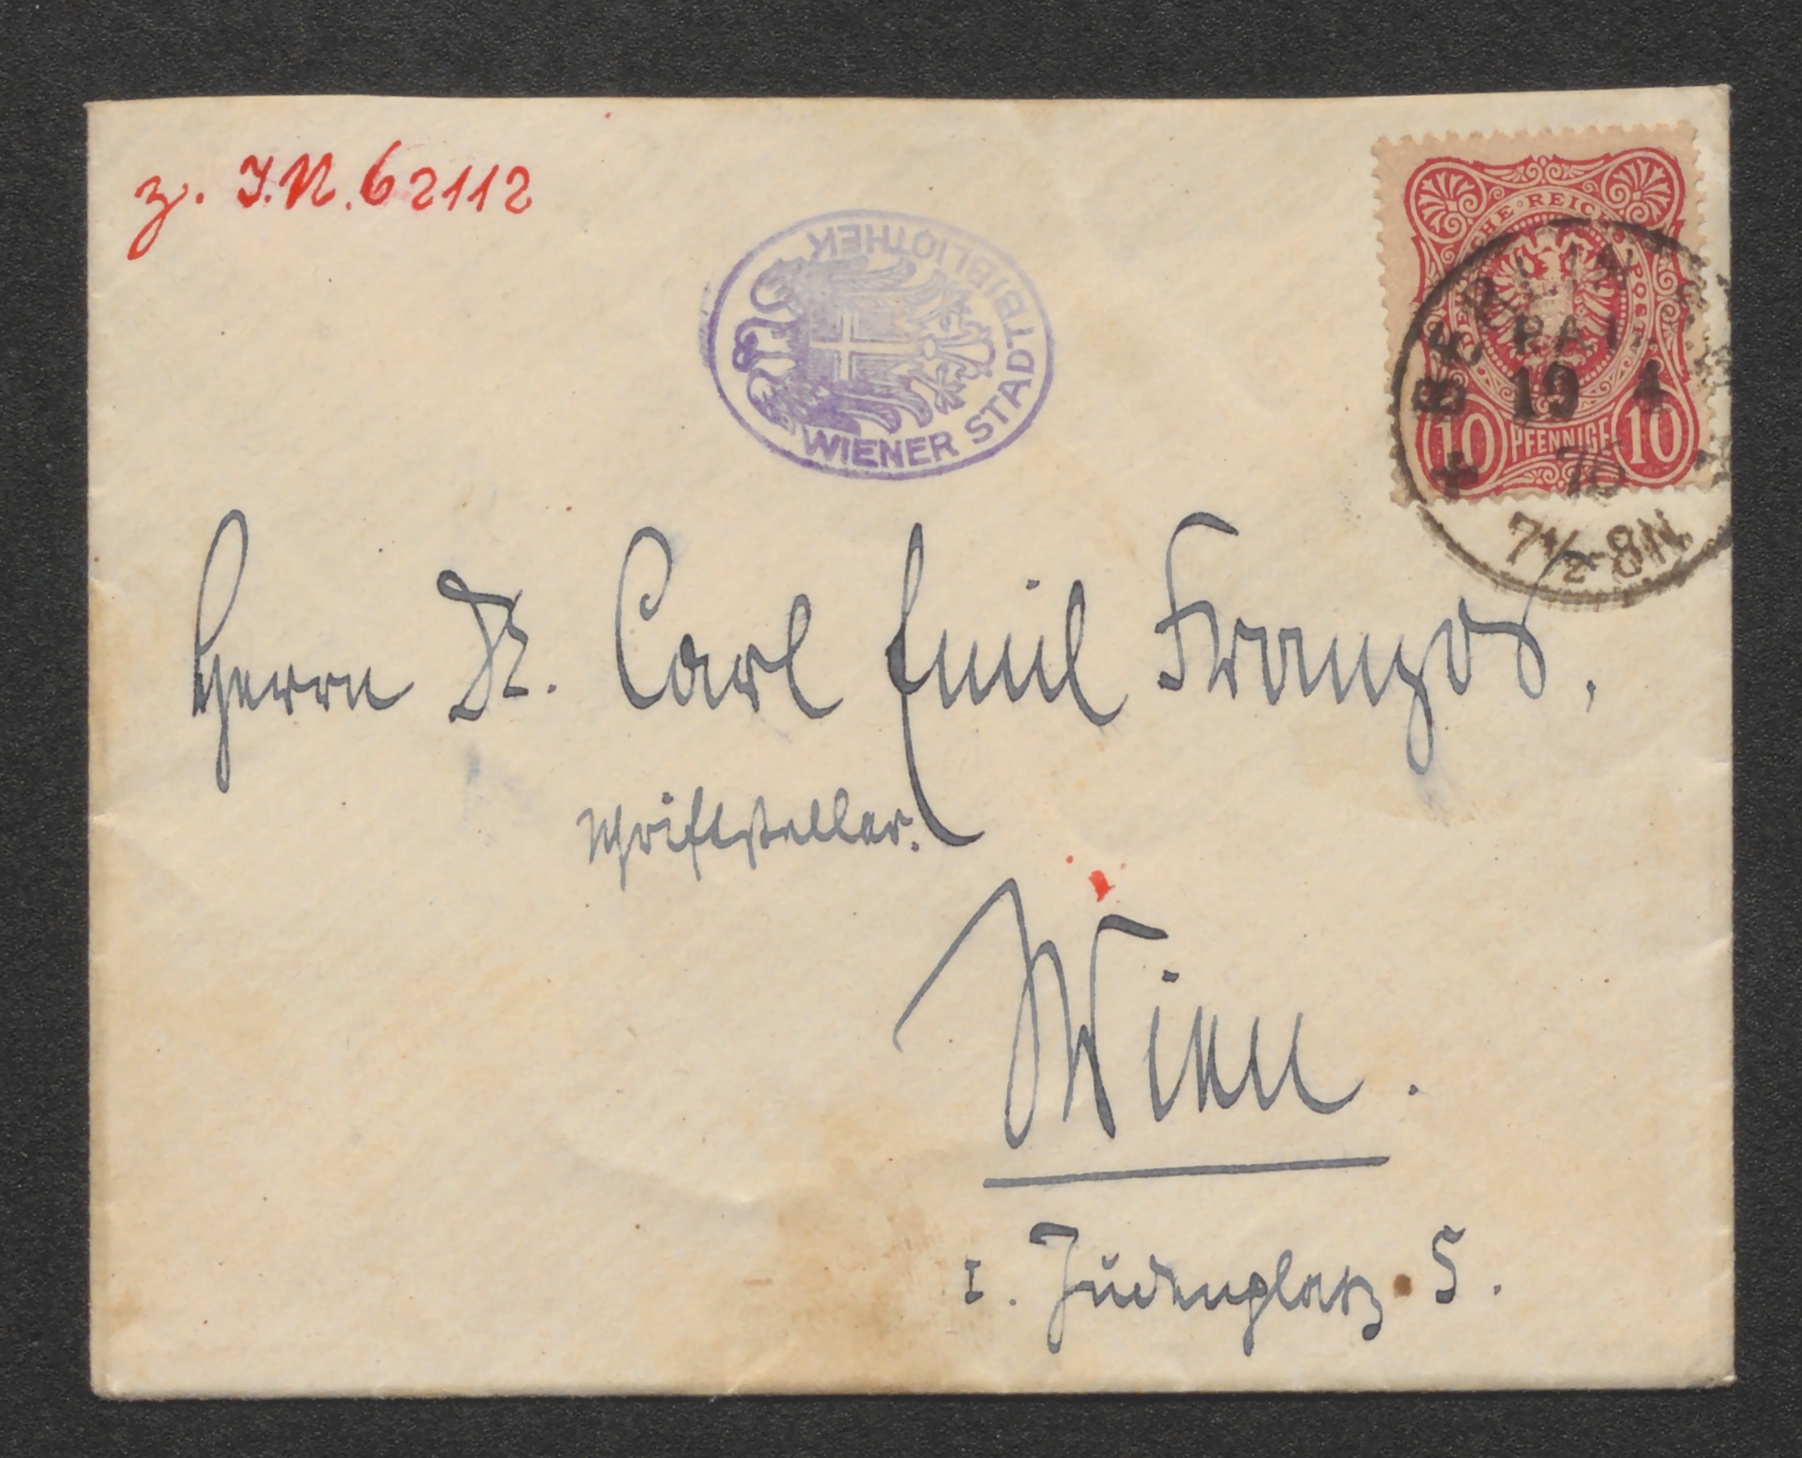 z. I.N. 62112
WIENER STADTBIBLIOTHEK
DEUTSCHE REICHS-POST
10 PFENNIGE 10
BERLIN
19 4
76
7½-8N.
Herrn Dr. Carl Emil Franzos,
Schriftsteller.
Wien.
I. Judenplatz 5.